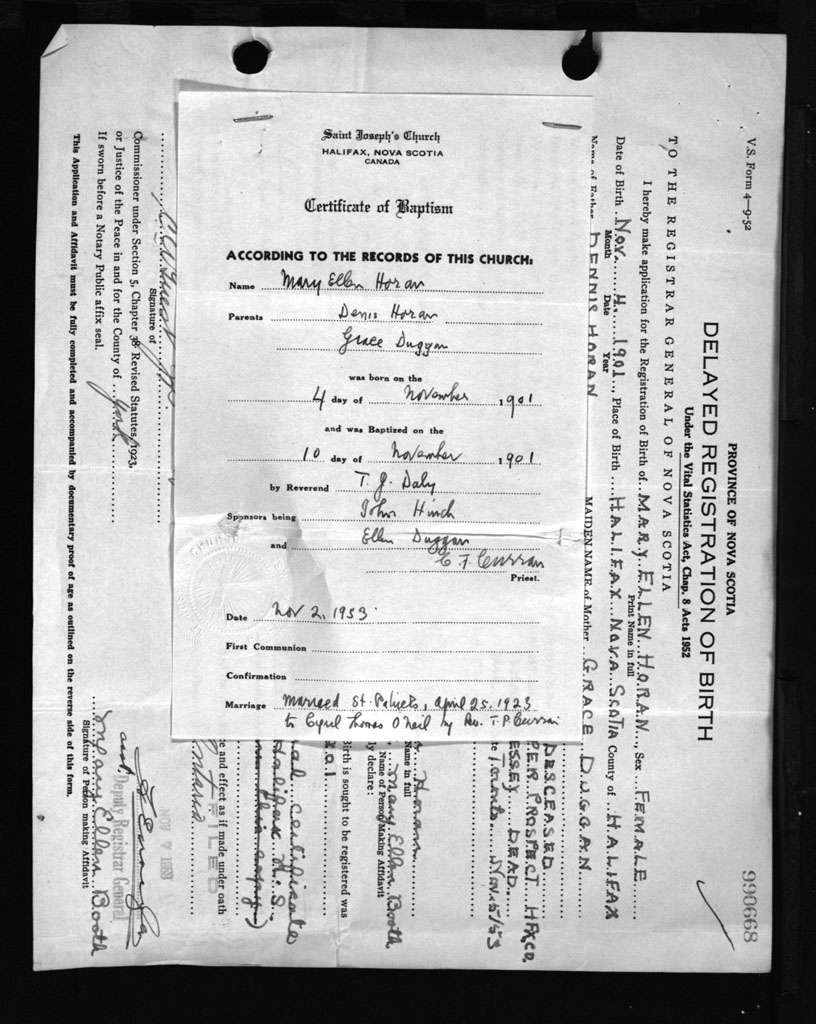 Saint Joseph's Church
HALIFAX, NOVA SCOTIA
CANADA
Certificate of Baptism
ACCORDING TO THE RECORDS OF THIS CHURCH:
Name Mary Ellen Horan
Parents Denis Horan
Grace Duggan
was born on the
4 day of November 1901
and was Baptized on the
10 day of November 1901
by Reverend T. J. Daly
Sponsors being John Hinch
and Ellen Duggan
C. F. Curran
Priest.
Date Nov 2, 1953
First Communion
Confirmation
Marriage Married St. Patrick's, April 25, 1923
to Cyril Thomas O'Neil by Rev. T. P. Curran
V.S. Form 4—9-52
990668
PROVINCE OF NOVA SCOTIA
DELAYED REGISTRATION OF BIRTH
Under the Vital Statistics Act, Chap. 8 Acts 1952
TO THE REGISTRAR GENERAL OF NOVA SCOTIA
I hereby make application for the Registration of Birth of MARY ELLEN HORAN Sex FEMALE
Print Name in full
Date of Birth NOV. 4. 1901 Place of Birth HALIFAX NOVA SCOTIA County of HALIFAX
Month Date Year
Name of Father DENNIS HORAN MAIDEN NAME of Mother GRACE DUGGAN
DESCEASED
PER PROSPECT HFX CO.
DEAD
Toronto Nov. 5/53
Horan
Name in full
Mary Ellen Booth
Name of Person Making Affidavit
ly declare:
Birth is sought to be registered was
certificate
Halifax N.S.
this copy)
ce and effect as if made under oath
Signature of
Commissioner under Section 5, Chapter 38 Revised Statutes, 1923,
or Justice of the Peace in and for the County of York
If sworn before a Notary Public affix seal.
NOV 7 1953
asst. Deputy Registrar General
Mary Ellen Booth
Signature of Person making Affidavit
This Application and Affidavit must be fully completed and accompanied by documentary proof of age as outlined on the reverse side of this form.